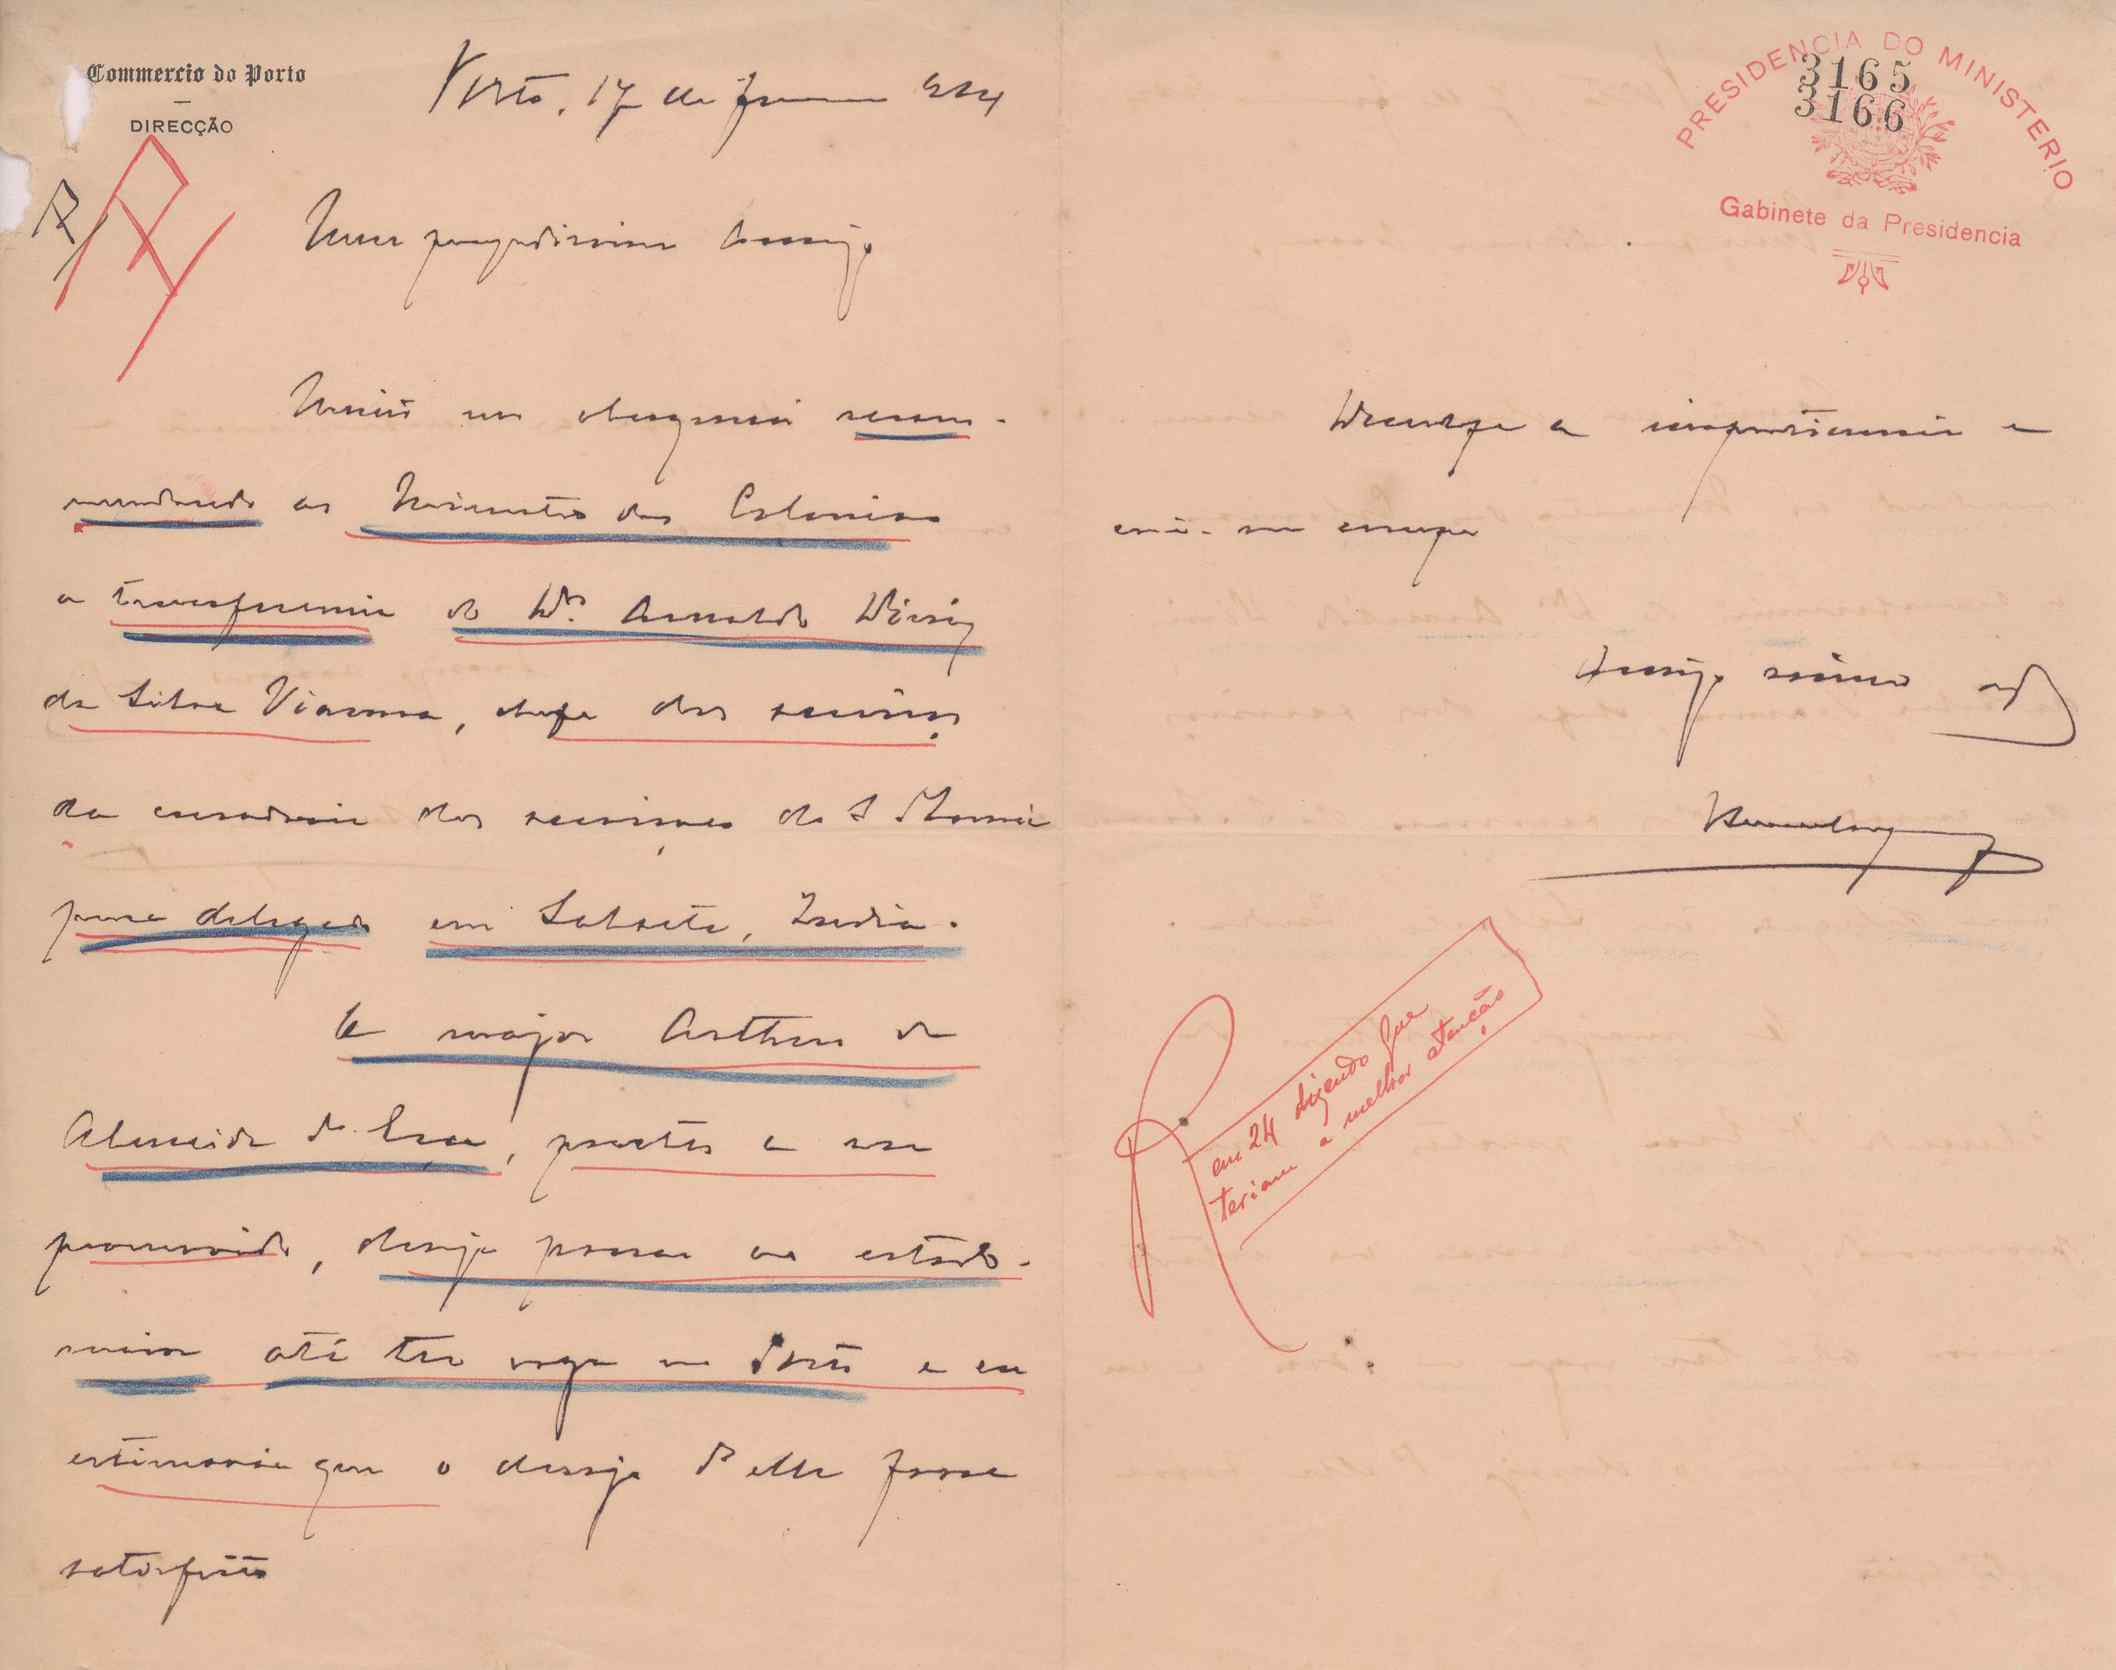 Commercio do Porto
DIRECÇÃO
Porto, 17 de 914
R
R
Meu prezadissimo Amigo
Muito me obsequeia recom-
mendando ao Ministro das Colonias
a transferencia do Dr. Arnaldo Diniz
da Silva Vianna, chefe dos serviços
da curadoria dos serviçaes de S Thomé
para delegado em Salsete, India.
O major Arthur de
Almeida d'Eça, prestes a ser
promovido, deseja passar ao estado-
maior até ter vaga no Porto e eu
estimaria que o desejo d'elle fosse
satisfeito
PRESIDENCIA DO MINISTERIO
3165
3166
Gabinete da Presidencia
Desculpe a impertinencia e
creia-me sempre
Amigo
R. em 24 dizendo que
teriam a melhor atenção